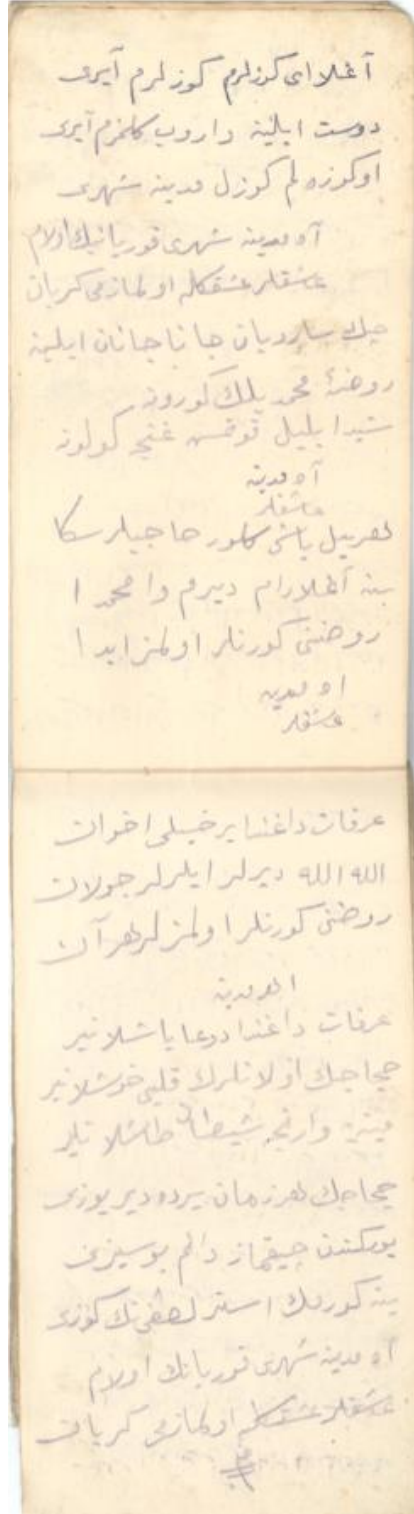 آغلا ای كوزلرم كوزلرم آیری
دوست ایلینه واروب كلمزم آیری
او كوزه لم كوزل مدینه شهری
آه مدینه شهری قوربانك اولام
عشقلر عشقكله اولمازمی كریان
جانا جانان ایلینه
روضهٔ محمد كورونه
شیدا بلبل قونمش غنچه كولونه
آه مدینه
عشقلر
هر ییل باشی كلور حاجیلر سكا
بن آغلارام دیرم وا محمدا
روضنی كورنلر اولمز ابدا
آه مدینه
عشقلر
عرفات داغندا بر خیلی اخوان
الله الله دیرلر ایلرلر جولان
روضنی كورنلر اولمزلر هر آن
اه مدینه
عرفات داغندا دوعا باشلانیر
حجاجك اولانلرك قلبی خوشلانیر
وارنجه شیطان طاشلانیر
حجاجك هر زمان یرده دیر یوزی
یوركندن چیقماز دائم بو سوزی
ینه كورمك استر لطفی نك كوزی
آه مدینه شهری قوربانك اولام
عشقلر عشقكله اولمازمی كریان